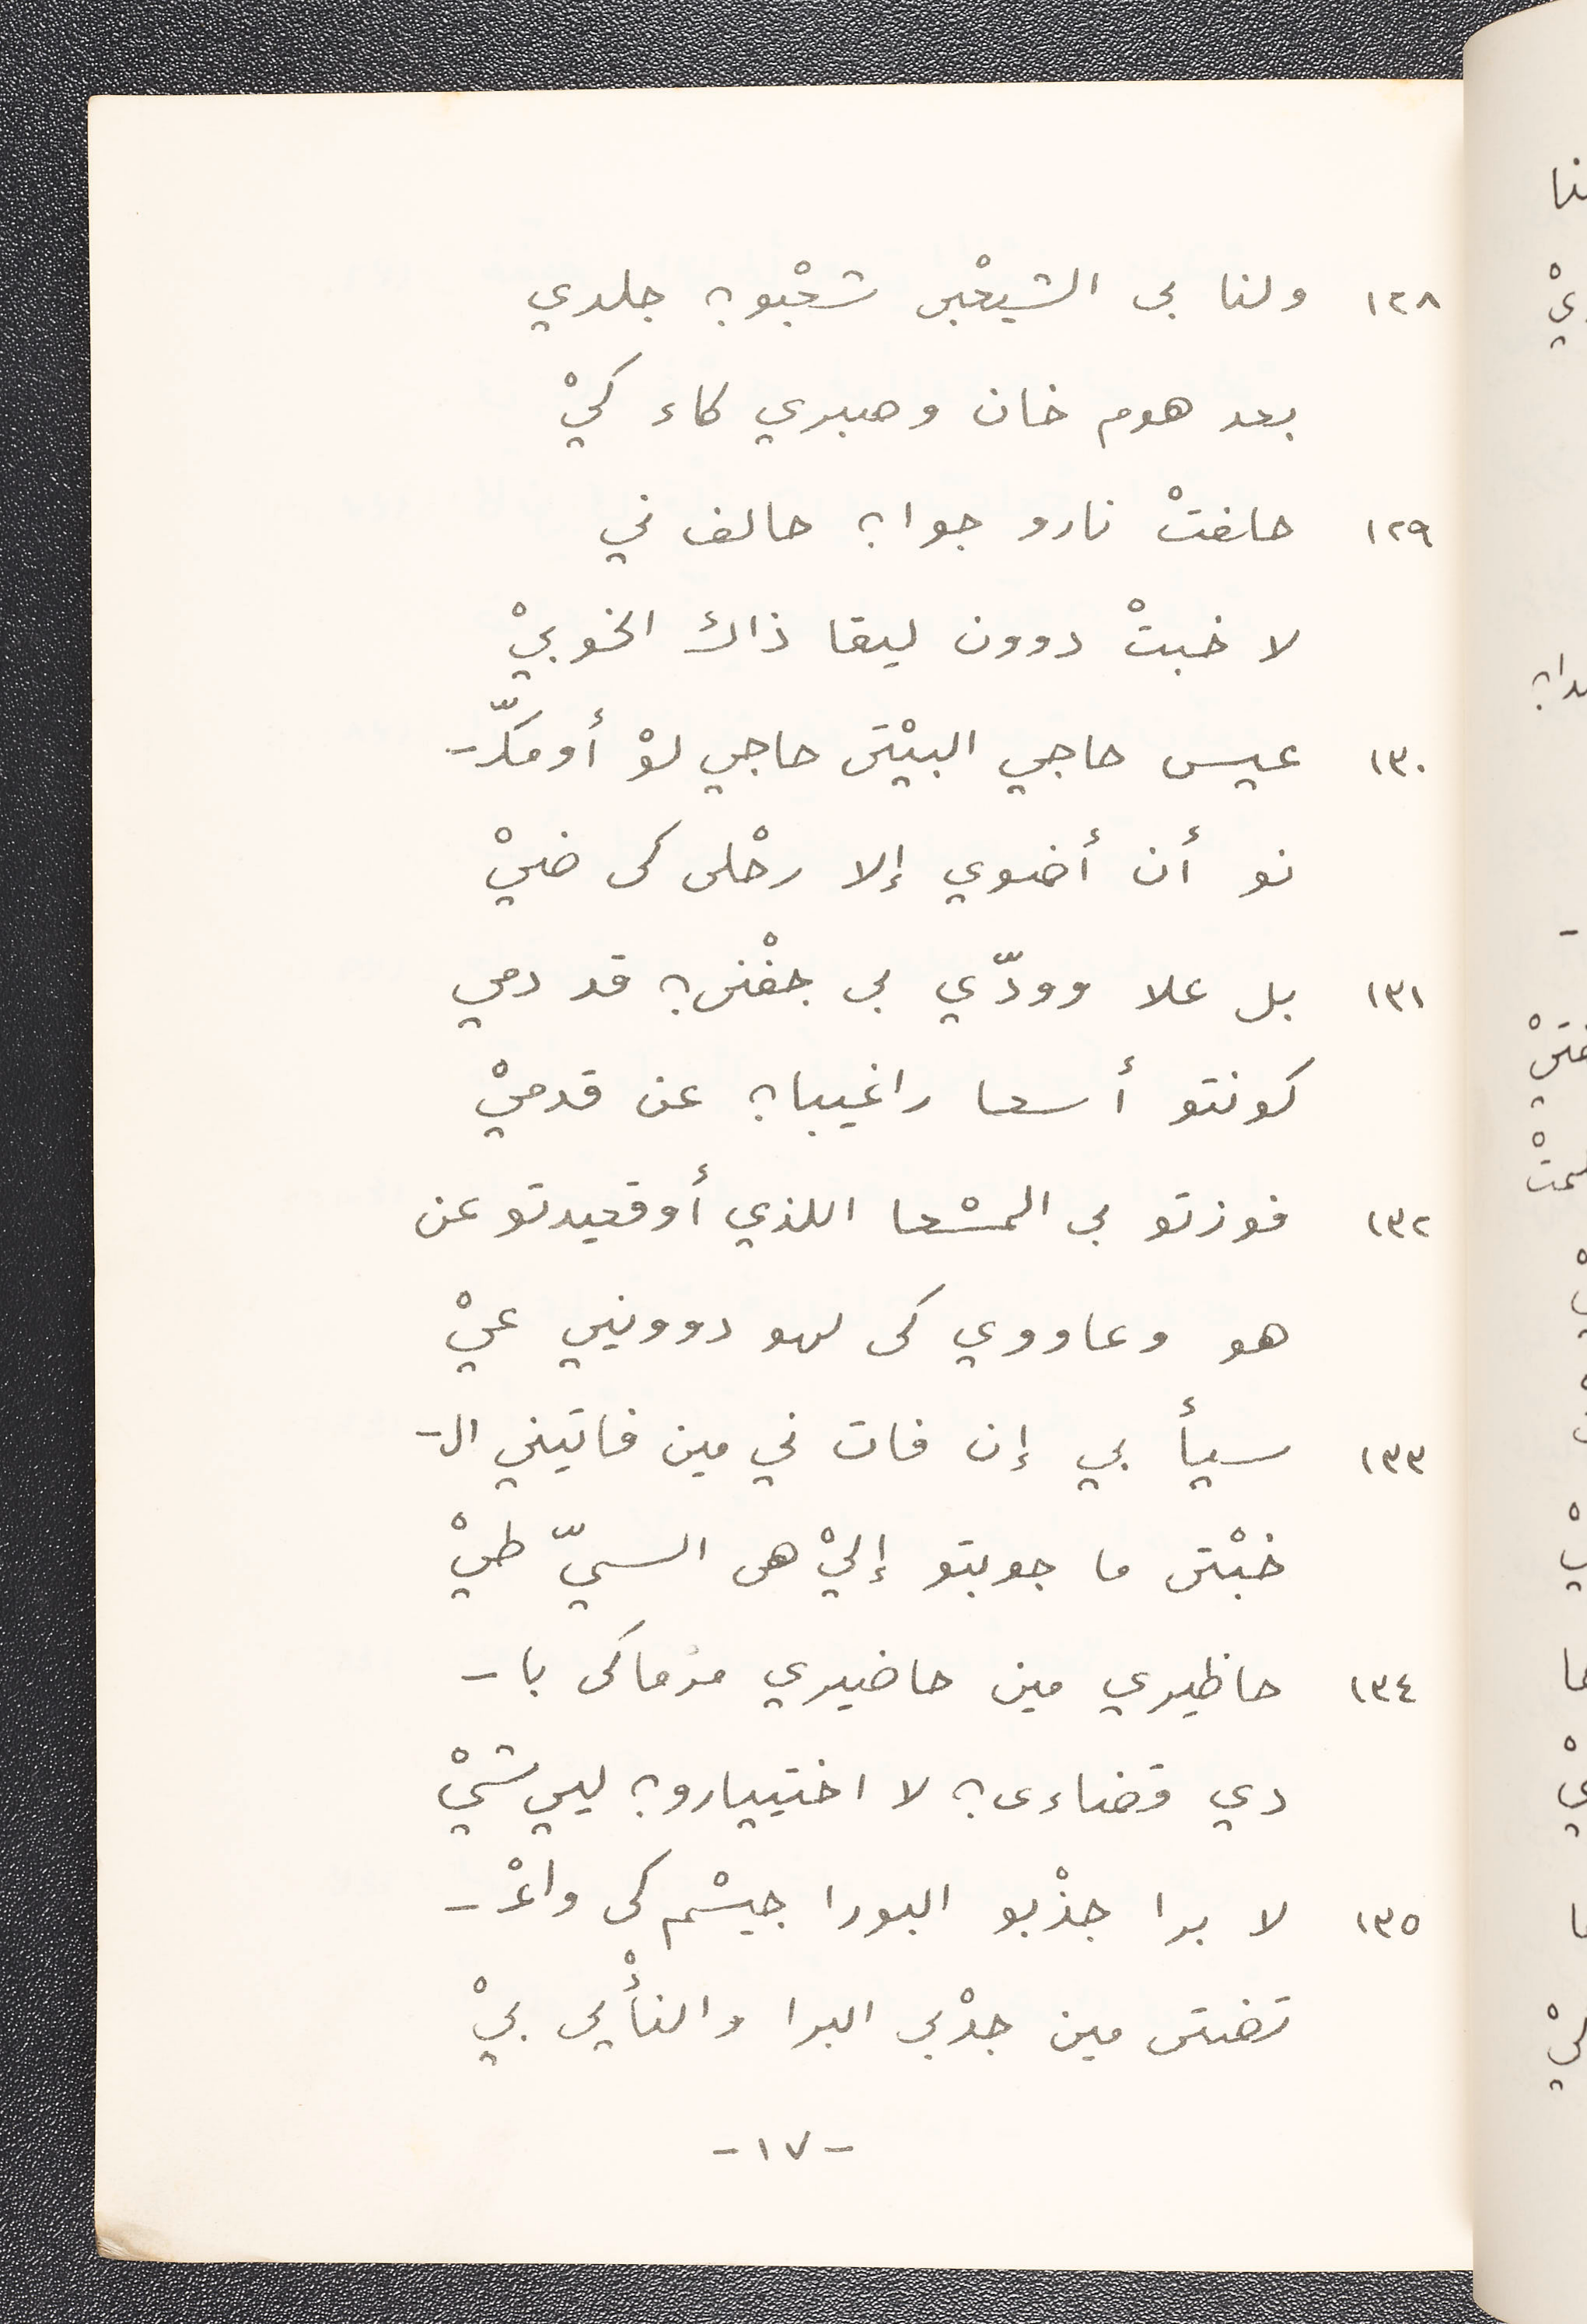 ١٢٨ ولنا بى الشيعْبى شعْبو؟ جلدي
بعد هوم خان وصبري كاء كيْ
١٢٩ حلفتْ نارو جوا؟ حالف ني
لا خبتْ دوون ليقا ذاك الخوبيْ
١٣٠ عيس حاجي البيْتى حاجي لوْ أومكّـ-
نو أن أضوي إلا رحْلى كى ضيْ
١٣١ بل علا وودّي بى جفْنى؟ قد دمي
كونتو أسعا راغيبا؟ عن قدميْ
١٣٢ فوزتو بى المسْعا اللذي أوقعيدتو عن
هو وعاووي كى لهو دوونيي عيْ
١٣٣ سيأ بي إن فات ني مين فاتيني الـ-
خبْتى ما جوبتو إليْ هى السيّ طيْ
١٣٤ حاظيري مين حاضيري مرْماكى با-
دي قضاءى؟ لا اختييارو؟ ليي شيْ
١٣٥ لا برا جذْبو البورا جيسْم كى واعْـ-
تضتى مين جدْبى البرا والنأْيي بيْ
-١٧-